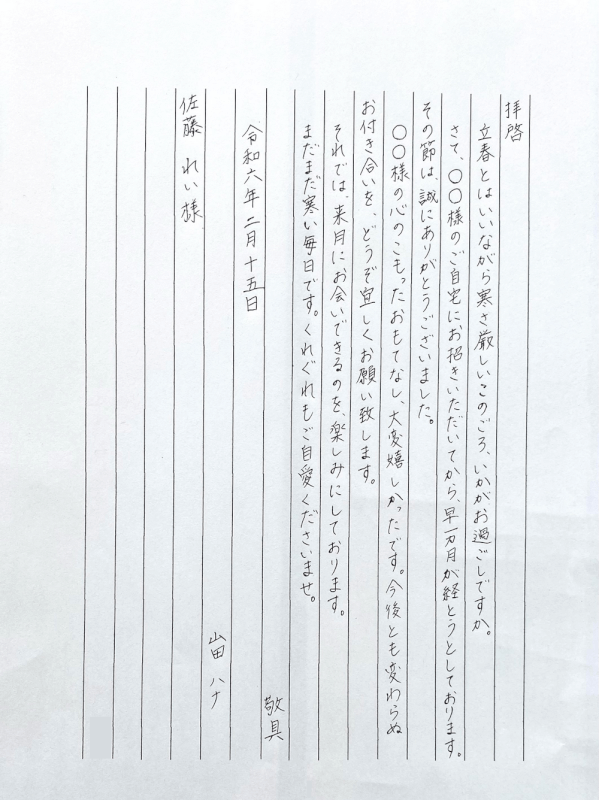 拝啓
立春とはいいながら寒さ厳しいこのごろ、いかがお過ごしですか。
さて、〇〇様のご自宅にお招きいただいてから、早一ヵ月が経とうとしております。
その節は、誠にありがとうございました。
〇〇様の心のこもったおもてなし、大変嬉しかったです。今後とも変わらぬ
お付き合いを、どうぞ宜しくお願い致します。
それでは、来月にお会いできるのを、楽しみにしております。
まだまだ寒い毎日です。くれぐれもご自愛くださいませ。
敬具
令和六年二月十五日
山田 ハナ
佐藤 れい様